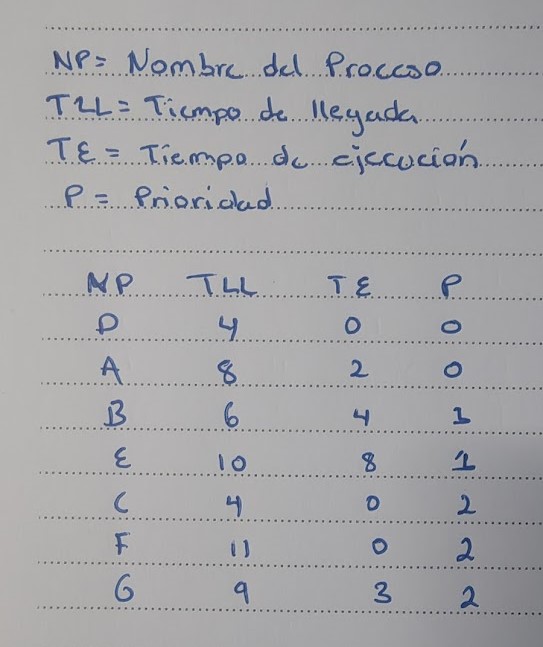 NP= Nombre del Proceso
TLL= Tiempo de llegada
TE= Tiempo de ejecución
P= Prioridad
NP TLL TE P
D 4 0 0
A 8 2 0
B 6 4 1
E 10 8 1
C 4 0 2
F 11 0 2
G 9 3 2